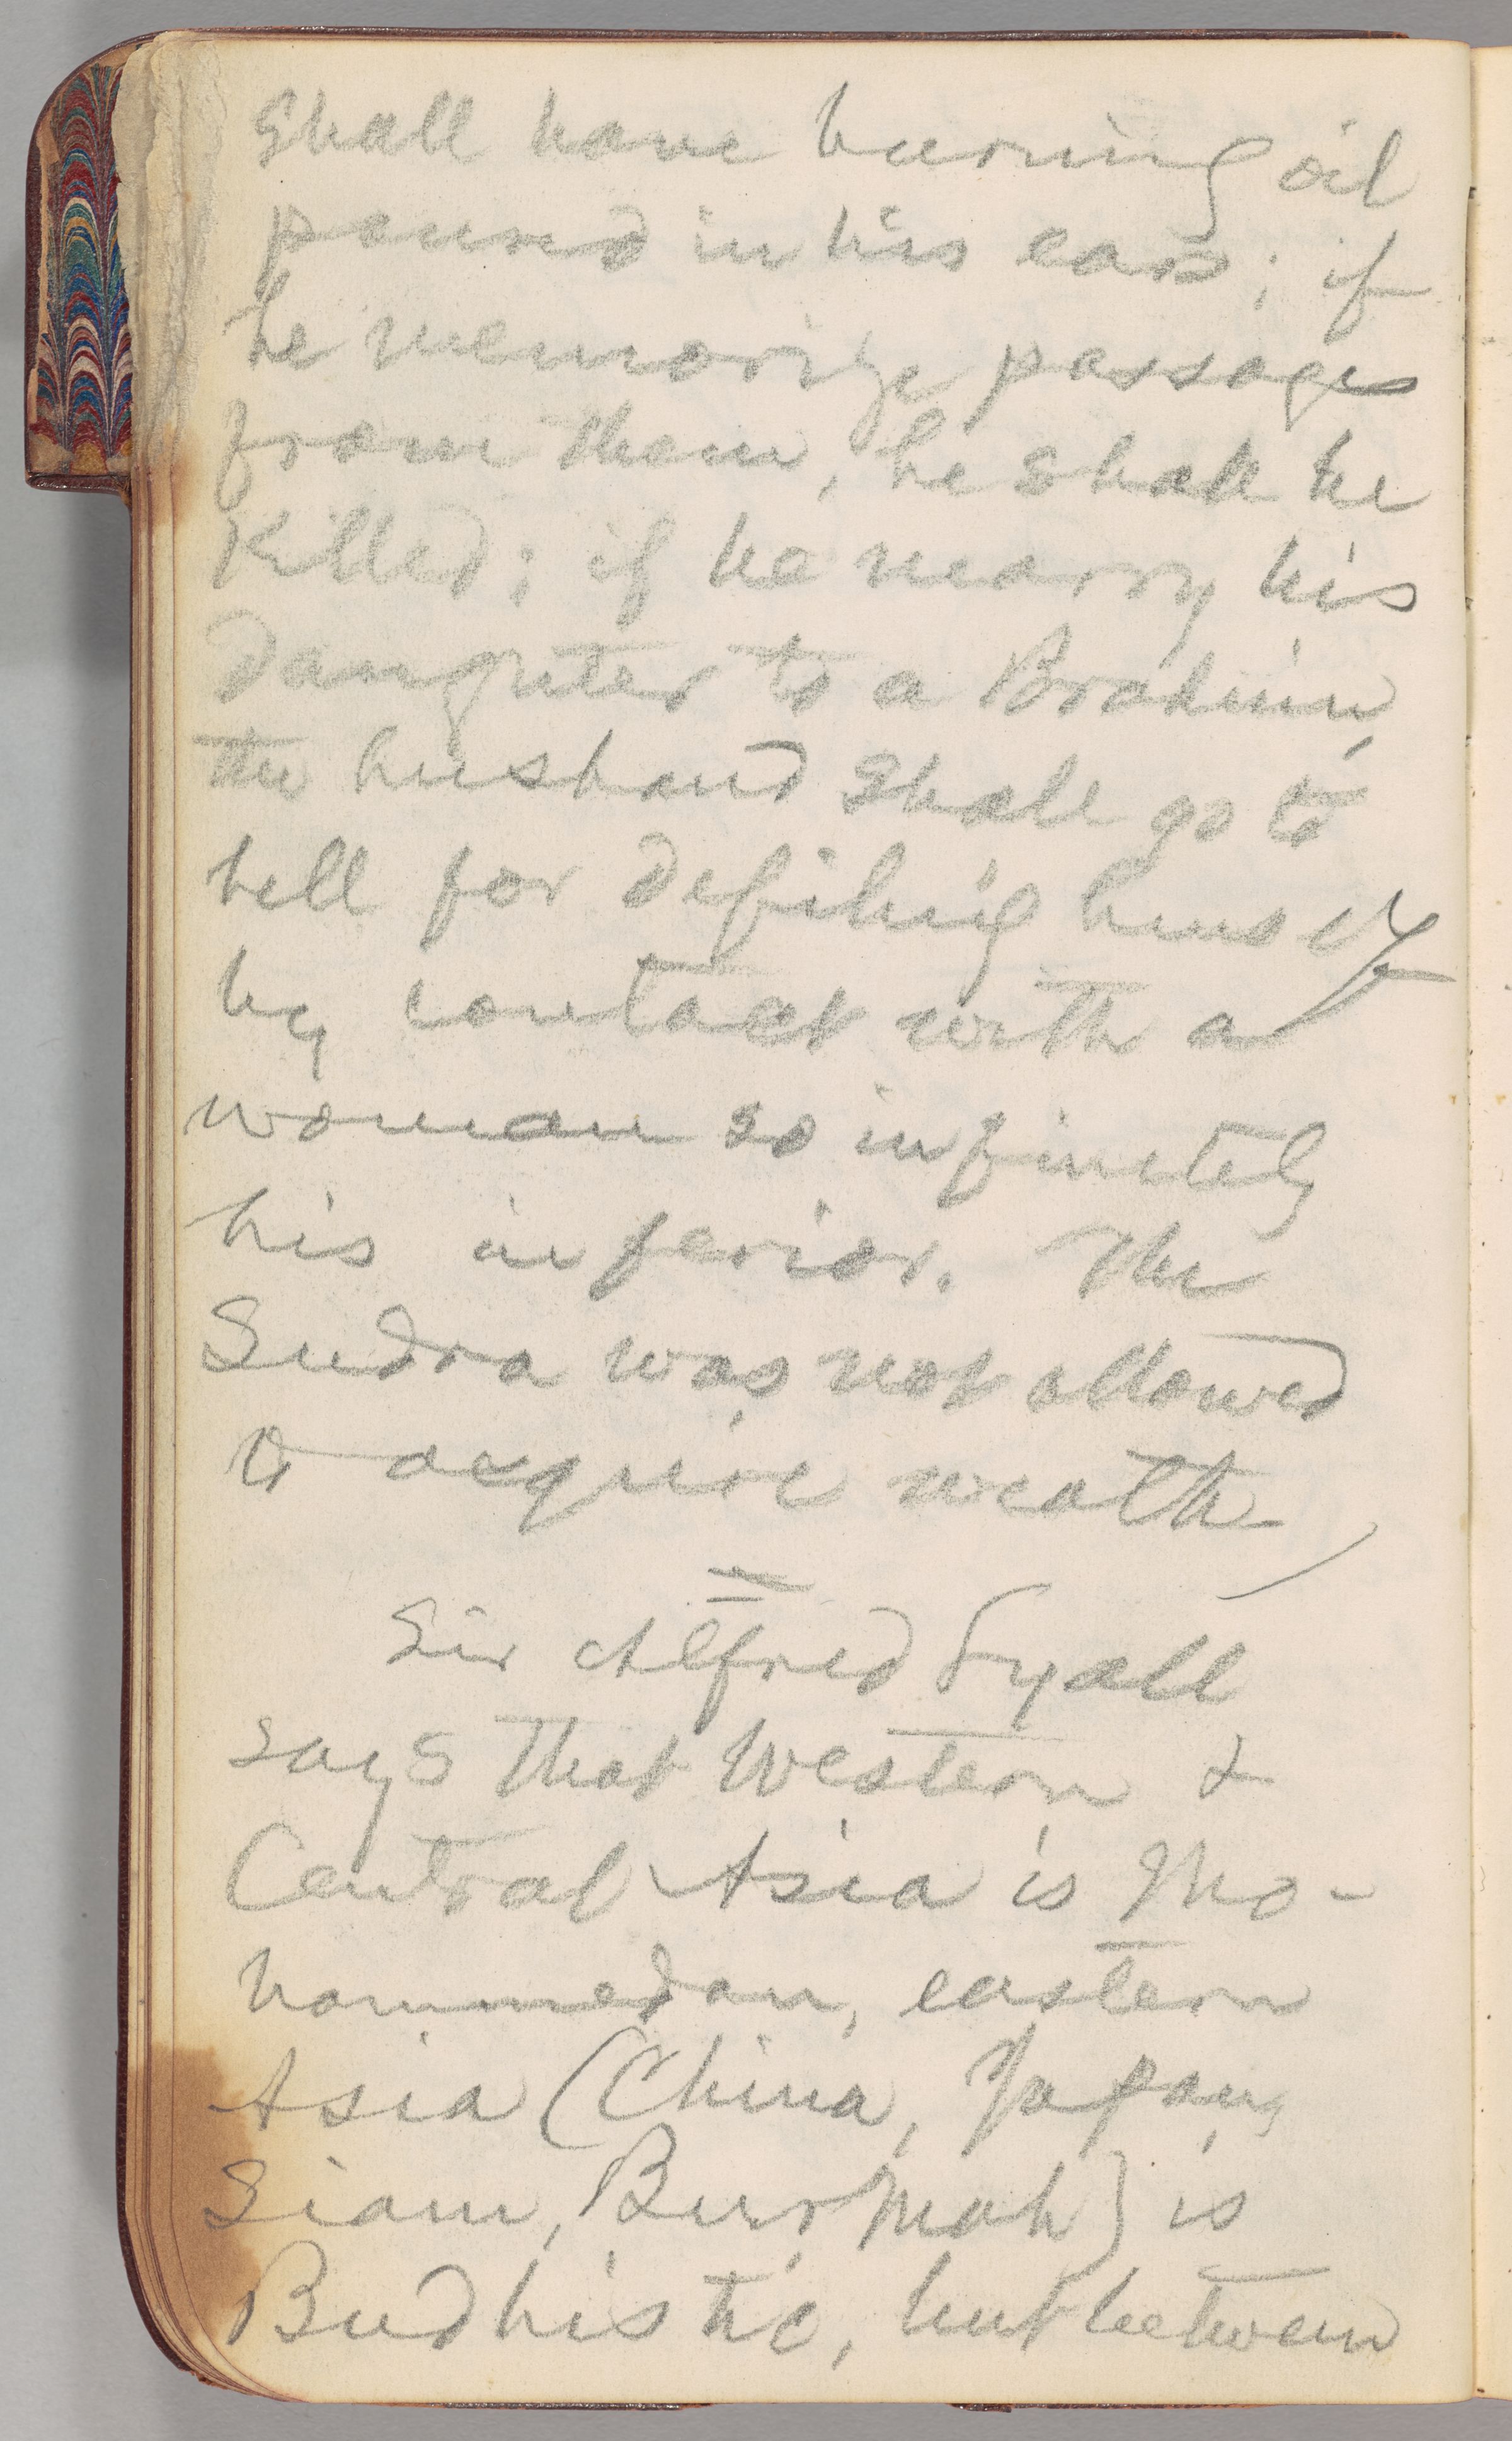 shall have burning oil
poured in his ears; if
he memorize passages
from them, he shall be
killed; if he marry his
daughter to a Brahmin,
the husband shall go to
hell for defiling himself
by contact with a
woman so infinitely
his inferior. The
Sudra was not allowed
to acquire wealth
Sir Alfred Lyall
says that Western &
Central Asia is Mo-
hammedan, eastern
Asia (China, Japan,
Siam, Burmah) is
Budhistic, but between